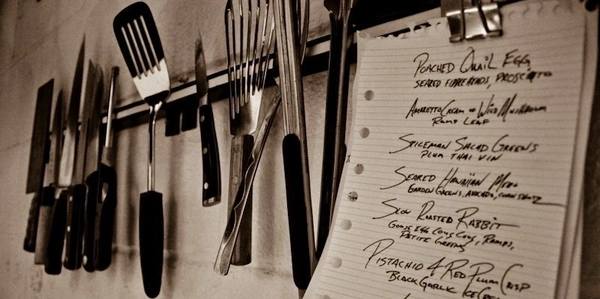 POACHED QUAIL EGG,
SEARED FORESHEADS, PROSCIUTTO
AMARETTO CREAM OF WILD MUSHROOM
RAMP LEAF
SPICEMAN SALAD GREENS
PLUM THAI VIN
SEARED HAWAIIAN MERO
GARDEN GREENS, AVOCADO,
SLOW ROASTED RABBIT
GOOSE EGG COUS COUS, RAMPS,
PETITE GREENS
PISTACHIO & RED PLUM CRISP
BLACK GARLIC ICE CREAM